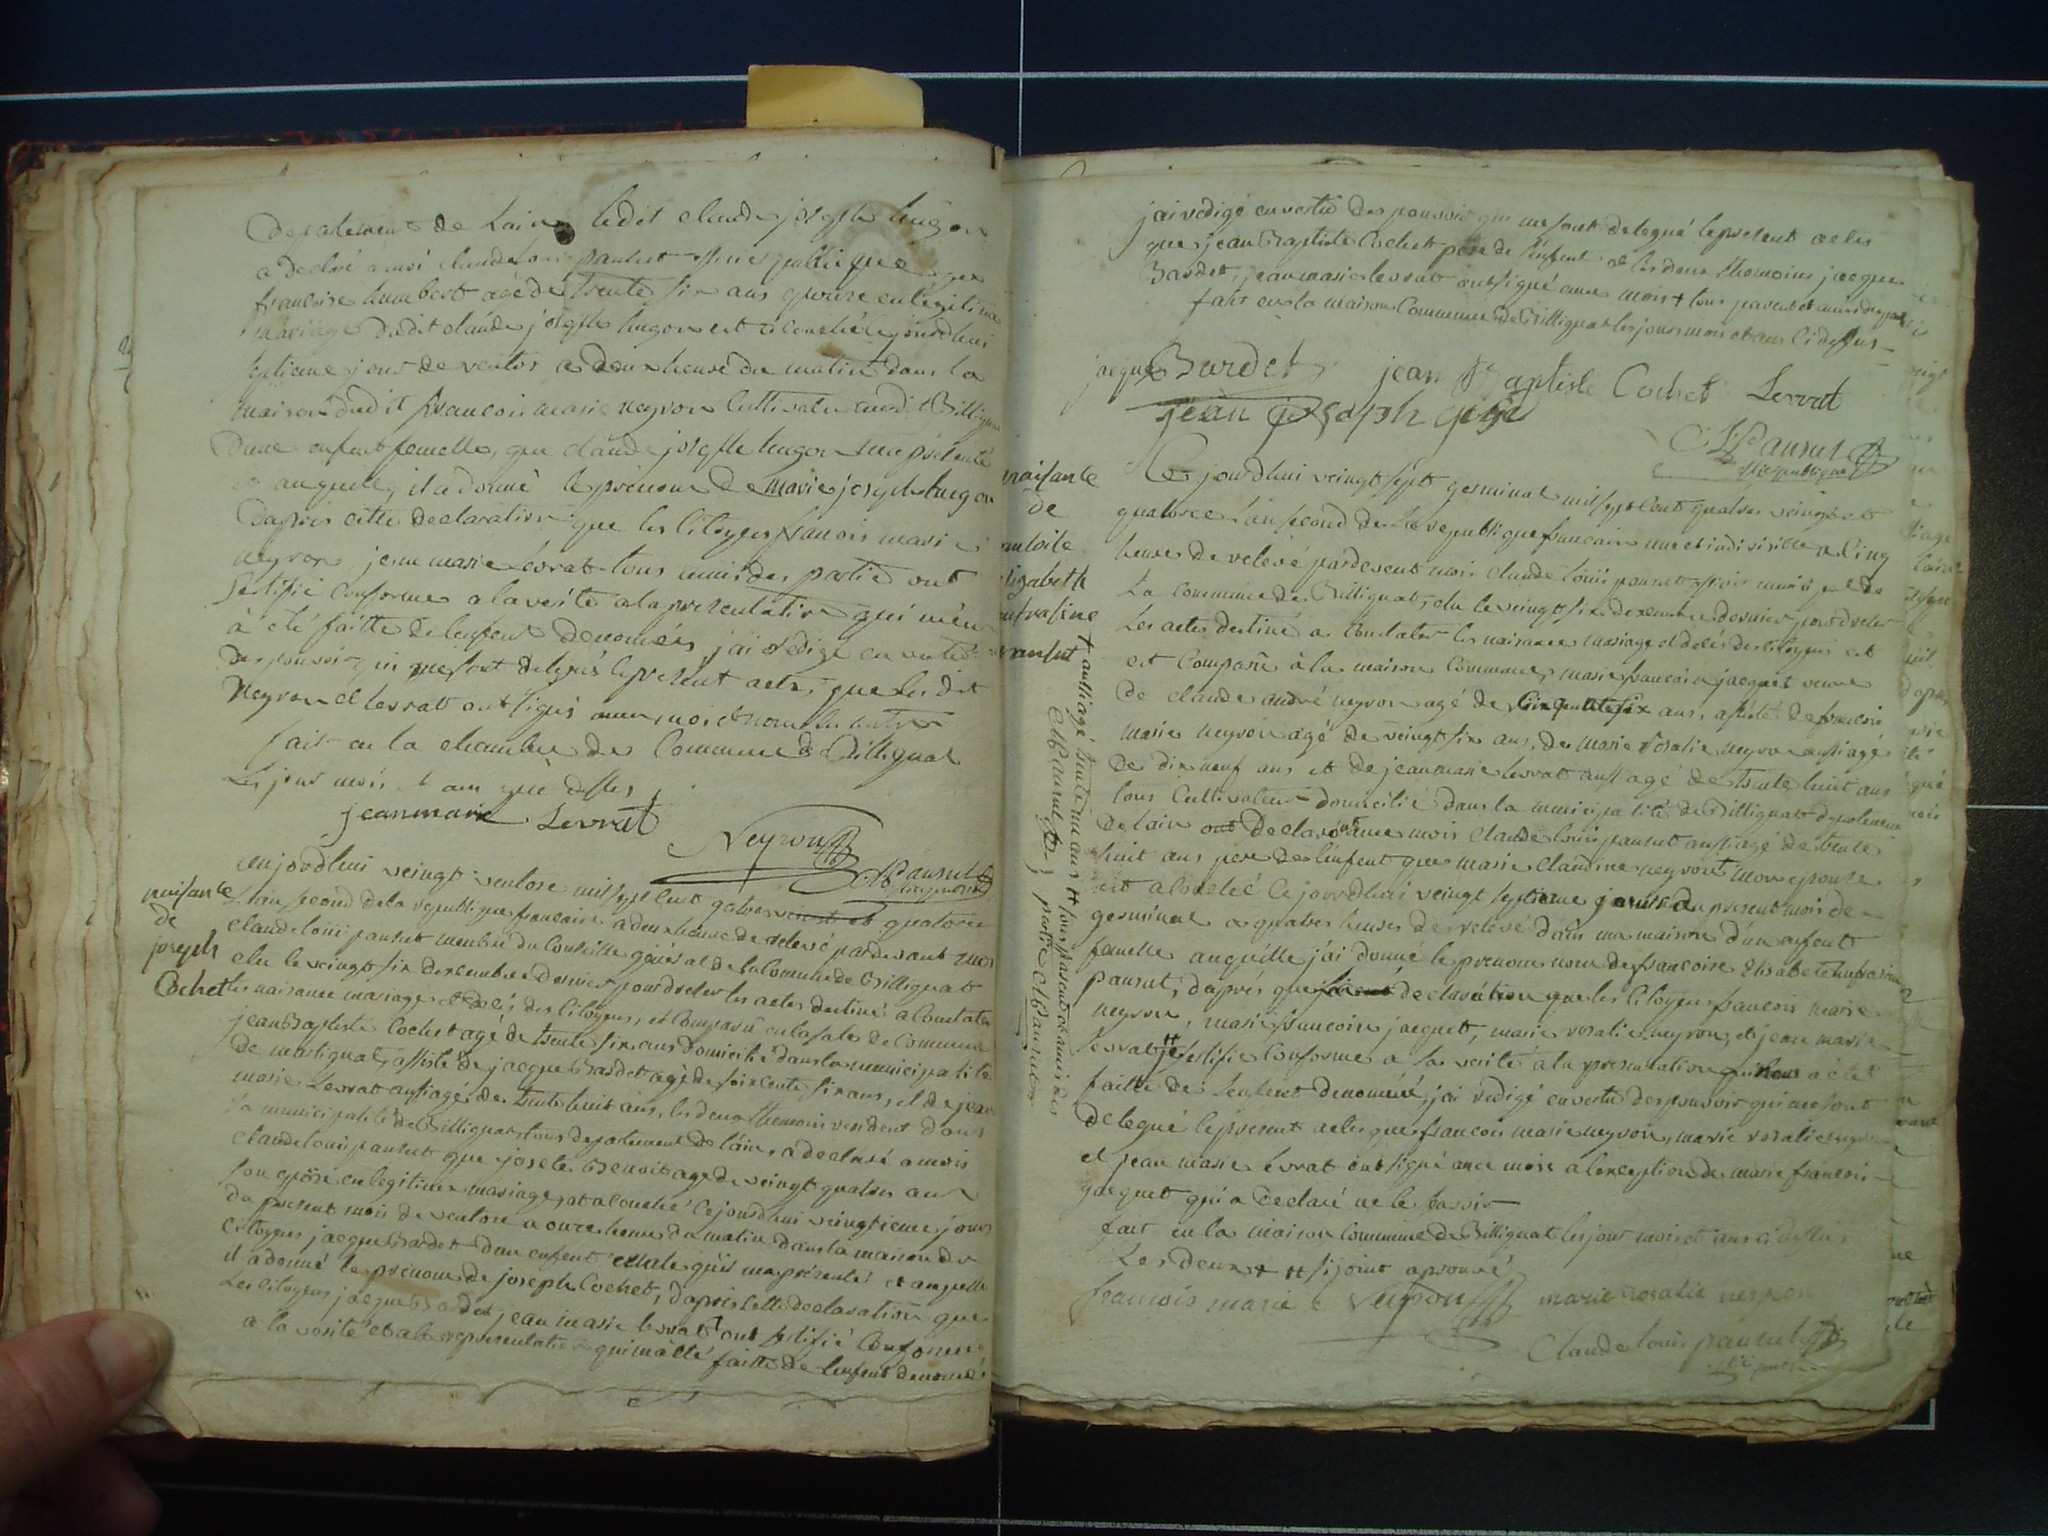 departement de Lain ledit claude josephe hugon
a declaré a moi claude louis pansut officier publique que
francoise humbert agé de trente six ans epouze en légitime
mariage dudit claude josephe hugon est acouché le jourdhui
septieme jour de ventos a deux heure du matin dans la
maison dudit francois marie neyron cultivateur audit Billigna
dune enfent femelle, que claude josephe hugon ma présenté
et auquelle il a donné le prenom de Marie joseph hugon
dapres cette declaration que les citoyens franois marie
neyron, jean marie levrat tous amis des partie ont
sertifié conforme a la verité a la presentation qui men
à été faitte de lenfent denomées, jai rédigé en vertu
des pouvoir qui me sont delegués le present acte, que lesdit
Neyron et levrat ont signés avec moi
fait en la chambre des Commune de Billignat
Les jour mois et an que dessus
jeanmarie Levrat
Neyron
Pansut
naisance
de
joseph
Cochet
aujourdhui veingt ventose mil sept cent quatre veingt et quatorze
lan second de la republique francaise a deux heure de relevé pardevant moi
claude louis pansut membre du Conseille général de la Commune de Billignat
elu le veingt six desembre dernier pour dreser les actes destiné a Constater
les naisance mariage et décés des citoyens, est Comparu en la sale de Commune
jean Baptiste Cochet agé de trente six ans domicilié dans la municipalité
de martignat, assisté de jacque Bardet agé de soixente six ans, et de jean
marie Levrat aussi agé de trente huit ans, les deux themoins resident dans
la municipalité de Billignat tous departement de lain, a declaré a moi
claude louis pansut que josete Benoit age de veingt quatre ans
son epöse en legitime mariage, est acouché cejourdhui veingtieme jour
du present mois de ventose a onze heure du matin dans la maison du
citoyen jacque Bardet dun enfent male quil ma présenté et auquelle
il a donné le prénom de joseph Cochet, dapres cette declaration que
Les citoyens jacque Bardet jean marie levrat ont sertifié Conforme
a la verité et a la representation qui ma été faitte de lenfent denomé
jai redigé en vertu des pouvoir qui me sont delegué le present acte
que jean Baptiste Cochet pere de lenfent et les deux themoins jacque
Bardet, jean marie levrat ont signé avec moi + tous parent et amis des partie
fait en la maison Commune de Billignat les jour mois et ans ci dessus
jaque Bardet jean Baptiste Cochet Levrat
jean joseph
Cl Pansut
naisance
de
Elizabeth
pansut
Ce jourdhui veingt sept germinal mil sept cent quatre veingt et
quatorze lan second de la republique francaise une et indivisible a cinq
heure de relevé pardevent moi claude louis pansut officier municipal de
La Commune de Billignat, elu le veingt six desembre dernier pour dreser
Les actes destiné a Constater les naisance mariage et décés des citoyens est
est Comparu à la maison Commune, marie francoise jacquet veuve
de claude andré neyron agé de cinquante six ans, asisté de francois
marie neyron agé de veingt six ans, de marie rosalie neyron aussi agé
de dix neuf ans et de jean marie levrat aussi agé de trente huit ans
tous cultivateur domicilié dans la municipalité de Billignat departement
de lain ont declaré avec moi claude louis pansut aussi agé de trente
huit ans pere de lenfent que marie claudine neyron mon epouse
est acouché cejourdhui veingt septieme jour du present mois de
germinal a quatre heure de relevé dans ma maison dun enfent
femelle auquelle jai donné le prenom nom de francoise Elisabete
pansut, dapres declaration que les citoyens francois marie
neyron, marie francoise jacquet, marie rosalie neyron, et jean marie
levrat sertifié Conforme a la verité a la presentation a été
faitte de lenfent denomé, jai redigé en vertu des pouvoir qui me sont
delegué le present acte que francois marie neyron, marie rosalie neyron
et jean marie levrat ont signé avec moi a lexeption de marie francoise
jacquet qui a declaré ne le savoir
fait en la maison Commune de Billignat les jour mois et ans ci dessus
Les deux + ++ si joint aprouvé
francois marie neyron marie rosalie neyron
Claude louis pansut
+ aussi agé trente neuf ans ++ tous parent et amis des
partie Cl Pansut